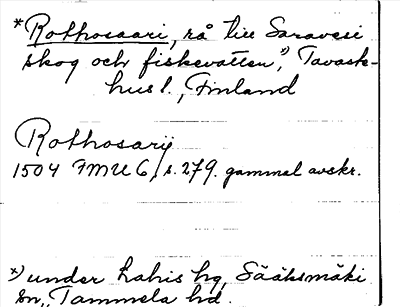 *Rothosaari, rå till Saravesi
skog och fiskevatten,*) Tavast-
hus l., Finland
Rothosarij
1504 FMU 6, s. 279. gammal avskr.
*) under Lahis hg, Sääksmäki
sn., Tammela hd.